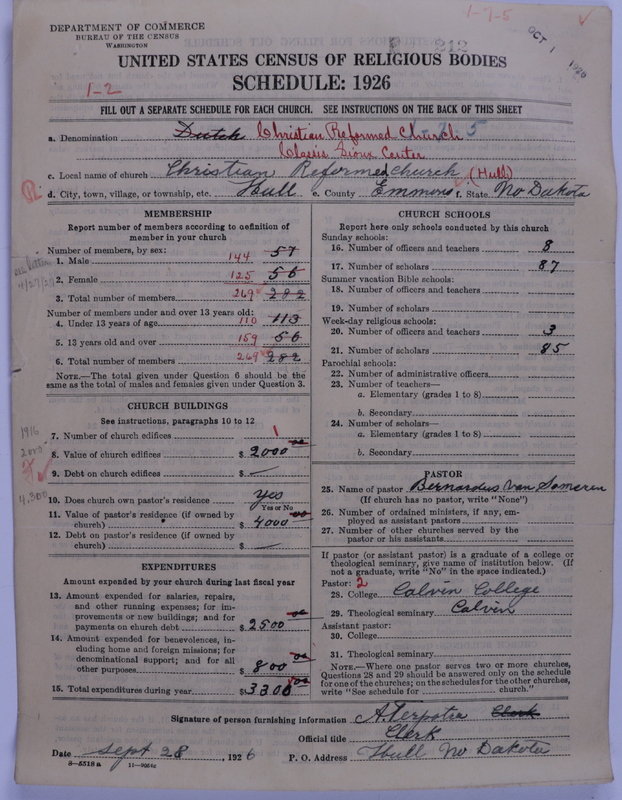 DEPARTMENT OF COMMERCE
BUREAU OF THE CENSUS
WASHINGTON
1-7-5
212
OCT 1 1926
UNITED STATES CENSUS OF RELIGIOUS BODIES
SCHEDULE: 1926
1-2
FILL OUT A SEPARATE SCHEDULE FOR EACH CHURCH. SEE INSTRUCTIONS ON THE BACK OF THIS SHEET
a. Denomination Dutch Christian Reformed Church
Classis Sioux Center
c. Local name of church Christian Reformed Church (Hull)
d. City, town, village, or township, etc. Hull e. County Emmons f. State No Dakota
MEMBERSHIP
Report number of members according to definition of member in your church
Number of members, by sex:
1. Male 144 57
2. Female 125 56
3. Total number of members 269 282
Number of members under and over 13 years old:
4. Under 13 years of age 110 113
5. 13 years old and over 159 56
6. Total number of members 269 282
NOTE.—The total given under Question 6 should be the same as the total of males and females given under Question 3.
CHURCH BUILDINGS
See instructions, paragraphs 10 to 12
7. Number of church edifices 1
8. Value of church edifices $ 2000 00
9. Debt on church edifices $ —
1916
2000
4,300
10. Does church own pastor's residence Yes
Yes or No
11. Value of pastor's residence (if owned by church) $ 4000 00
12. Debt on pastor's residence (if owned by church) $ —
EXPENDITURES
Amount expended by your church during last fiscal year
13. Amount expended for salaries, repairs, and other running expenses; for improvements or new buildings; and for payments on church debt $ 2500 00
14. Amount expended for benevolences, including home and foreign missions; for denominational support; and for all other purposes $ 800 00
15. Total expenditures during year $ 3300 00
CHURCH SCHOOLS
Report here only schools conducted by this church
Sunday schools:
16. Number of officers and teachers 8
17. Number of scholars 87
Summer vacation Bible schools:
18. Number of officers and teachers
19. Number of scholars
Week-day religious schools:
20. Number of officers and teachers 3
21. Number of scholars 85
Parochial schools:
22. Number of administrative officers
23. Number of teachers—
a. Elementary (grades 1 to 8)
b. Secondary
24. Number of scholars—
a. Elementary (grades 1 to 8)
b. Secondary
PASTOR
25. Name of pastor Bernardus Van Someren
(If church has no pastor, write "None")
26. Number of ordained ministers, if any, employed as assistant pastors
27. Number of other churches served by the pastor or his assistants
If pastor (or assistant pastor) is a graduate of a college or theological seminary, give name of institution below. (If not a graduate, write "No" in the space indicated.)
Pastor: 2
28. College Calvin College
29. Theological seminary Calvin
Assistant pastor:
30. College
31. Theological seminary
NOTE.—Where one pastor serves two or more churches, Questions 28 and 29 should be answered only on the schedule for one of the churches; on the schedules for the other churches, write "See schedule for church."
Signature of person furnishing information A. Terpstra Clerk
Official title Clerk
Date Sept 28, 1926 P. O. Address Hull No Dakota
8—5518 a